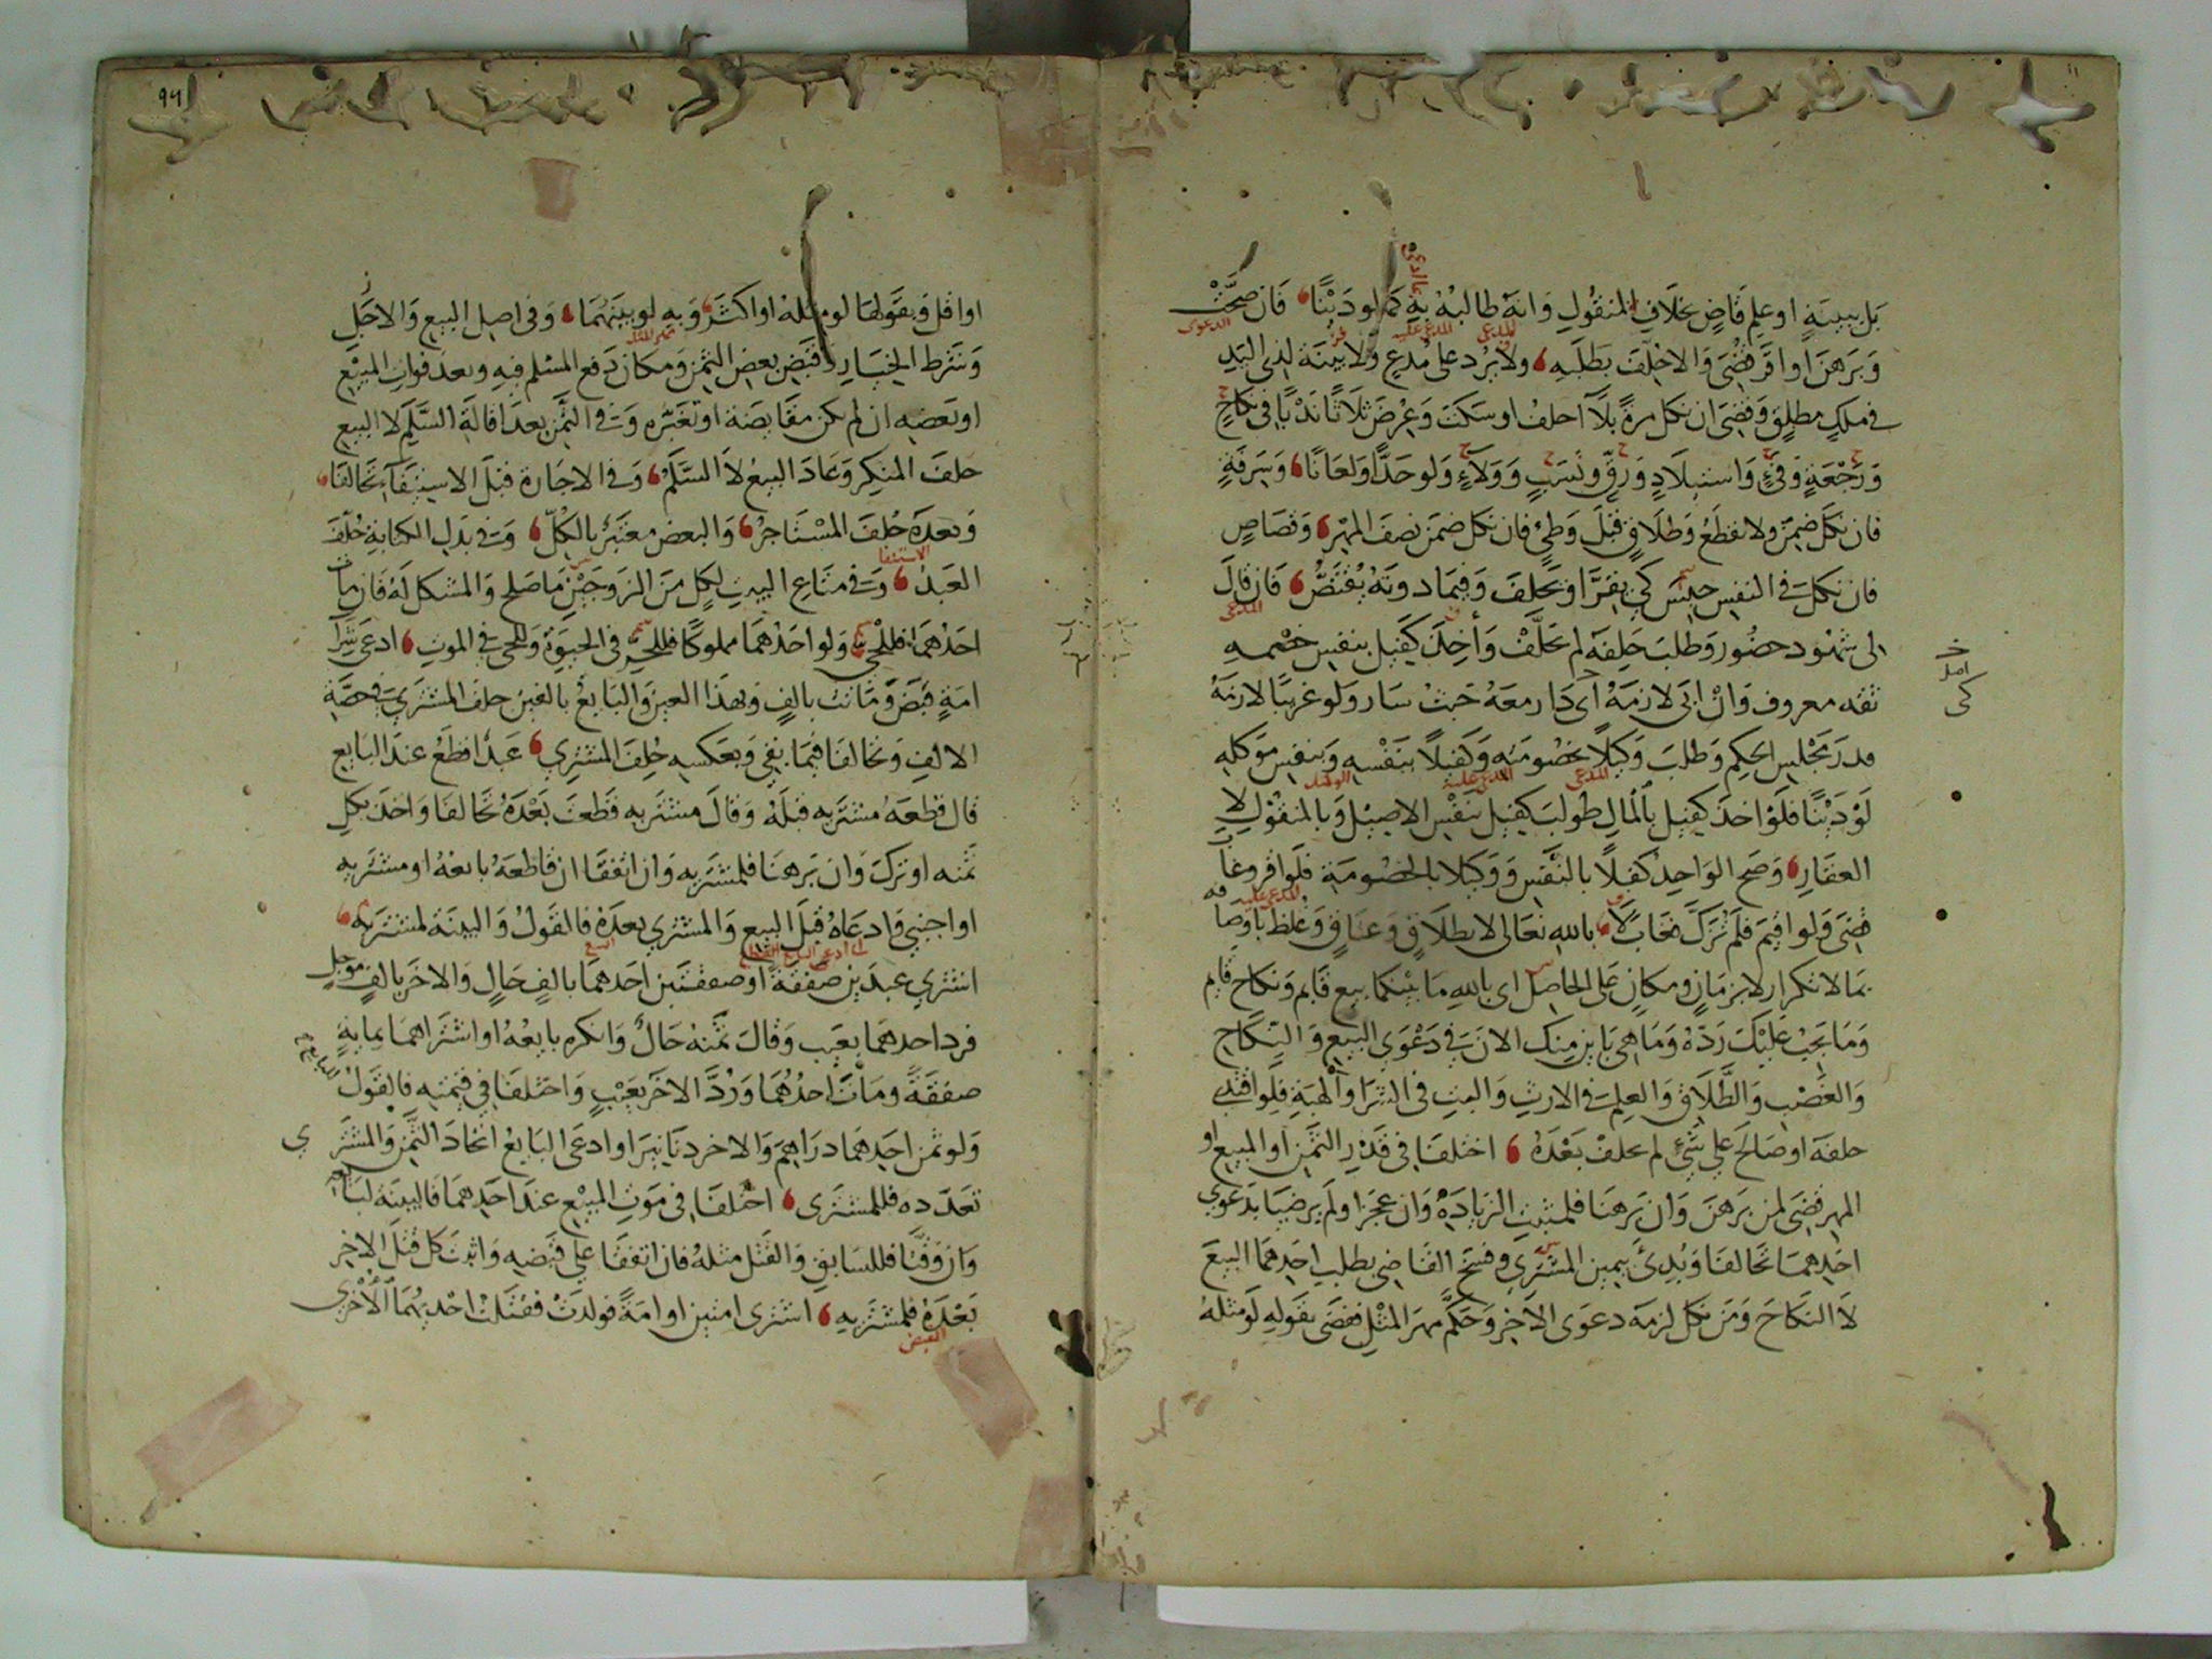 بَل ببينَةٍ او علمِ قَاضٍ بخلافِ المنقُولِ وَانهَ طالبهُ بهِ كما لو دَيْنًا فَان صحَّتْ
وَبَرهَنَ او اقر قُضىَ وَالا حَلَّفَ بطَلَبه ولا يرُد على مُدعٍ ولا بينَة لذى اليَدِ
فى ملكٍ مطلقٍ وَقضىَ ان نكل مرةً بلاَ احلفُ او سَكتَ وَعرضَ ثلاَثًا نَدْبًا فى نكاحٍ
وَرَجْعَةٍ وَفئٍ وَاستيلاَدٍ وَرقٍّ ونَسَبٍ وَوَلاَءٍ وَلو حَدًّا ولعَانًا وَسَرقةٍ
فان نكَل ضمنَ ولا نقطعُ وَطلاَقٍ قبْلَ وَطئٍ فان نكل ضمنَ نصفَ المهْرِ وَقصَاصٍ
فان نكلَ فى النفسِ حبسَ كى يقِرَّ او يحلفَ وَفيمَا دونهَ يُقتَصُّ فَان قالَ
لى شهُود حضُور وَطلبَ حَلِفَهُ لم يُحَلَّفْ وَأخِذَ كفيل بنفسِ خصْمه
ثقه معروف وَانْ ابى لازمَهُ اى دَار معَهُ حَيثُ سَار وَلو غريبًا لازمَهُ
قدرَ مَجْلس الحكم وَطلبَ وَكيلاً بخصُومَته وَكفيلاً بنفْسه وَبنفسِ موكله
لَوْ دَيْنًا فلَوْ اخذ كفيل بالمالِ طُولبَ كفيل بنَفْسِ الاصيْل وَبالمنقُوْلِ لا
العقَارِ وَصَح الوَاحدُ كفيلاً بالنَّفسِ وَوَكيلا بالخصُومَةِ فلَو اقر وغابَ
قُضىَ وَلو اقيمَ فلم تُزَكَّ فغَابَ لاَ بالله تعَالى لا بطلاَقٍ وَعتَاقٍ وَغلظ باوصَافه
بما لا تكرار لا بزمَانٍ ومكانٍ عَلى الحاصِل اى بالله مَا بيْنكما بيع قَايم وَنكاح قايم
وَمَا يَجبُ عَليْكَ رَدّهُ وَمَا هىَ بَاين منك الانَ فى دَعْوَى البيع وَالنِّكاحِ
وَالغَصْب وَالطَّلاَقِ وَالعلمِ فى الارثِ وَالبتِ فى الشرَا وَالهبَةِ فلَو افتدى
حلفهَ او صَالحَ على شَئٍ لم يحلفْ بَعْدَهُ اختلفَا فى قَدْرِ الثمنِ او المبيع او
المهر قضىَ لمن بَرهَنَ وَان بَرهنَا فلمثبتِ الزيَادَةِ وَان عجزَا ولَم يَرضيَا بدَعوى
احَدهمَا تحَالفَا وَبُدِئَ بيمين المشترى وفسخَ القَاضى بطلب احَدهمَا البيعَ
لاَ النكاحَ وَمَن نكل لزمَه دعوَى الاخرِ وَحكَّم مهرَ المثْلِ فقضَى بقولهِ لَو مثلهُ
او اقل وَبقولهَا لو مثلهُ او اكثرَ وَبه لو بينَهُمَا وَفى اصل البيع وَالاجَلِ
وَشرط الخيَارِ وقبْضِ بعضِ الثمنِ وَمكان دَفع المسْلم فيهِ وبعدَ فواتِ المبيْعِ
او بَعضِه ان لم يكن مقَايضَة او تغيّره وَفى الثمن بعدَ اقالةِ السَّلَمِ لا البيعِ
حلفَ المنكر وَعادَ البيعُ لاَ السَّلَمُ وَفى الاجَارة قبْلَ الاسْتيفاءِ تحَالفَا
وَبعدَهُ حُلفَ المسْتاجرُ وَالبعض معتبَرٌ بالكلِّ وَفى بدَلِ الكتابةِ حُلِّفَ
العَبدُ وَفى متَاعِ البيتِ لكلٍ منَ الزوجيْنِ مَا صَلح وَالمشكل لَهُ فَان مات
احَدُهمَا فللحىِّ وَلو احَدُهمَا مملوكًا فللحُرِّ فى الحيَوةِ وَللحى فى الموتِ ادعَى شرَا
امَةٍ قبَضَ وَمَاتت بالفٍ وَبهذَا العبدِ وَالبَايعُ بالعَبدِ حلفَ المشترىَ فى حصَّةِ
الالفِ وَتحَالفَا فيمَا بقى وَبعَكسه حُلفَ المشترى عَبدٌ اقطعُ عندَ البَايع
قال قطعَهُ مشتريه قبلَهُ وَقالَ مشتريه قطَعتَ بعْدَهُ تحَالفَا وَاخذَ بكلِ
ثمنه او تركَ وَان بَرهنَا فلمشتريه وَان اتفقَا ان قاطعَهُ بايعهُ او مشتريه
او اجنبى وَادعَاهُ قبْلَ البيع وَالمشترى بعدَهُ فالقَولُ وَالبينَة لمشتريه
اشترى عبدَين صفقَةً او صفقتَين احدَهمَا بالفٍ حَالٍ وَالاخرَ بالفٍ موجلٍ
فرد احدهمَا بعَيب وَقالَ ثمنهُ حَالٌ وَانكره بايعُهُ او اشترَاهمَا بمايةٍ
صفقةً ومَاتَ احدُهُمَا وَرُدَّ الاخرَ بعَيْبٍ وَاختلفَا فى قيمتِه فالقَولُ للبايع
وَلو ثمن احَدهمَا درَاهمَ وَالاخر دنَانيرَ او ادعَى البَايعُ اتحادَ الثَّمنِ وَالمشترى
تعدّده فللمشترى اختلفَا فى مَوتِ المبيْع عندَ احَدهمَا فالبينَة لبَايعه
وَان وَقَّتَا فللسَابقِ وَالقتْل مثلهُ فان اتفقَا على قبْضه وَاثبتَ كل قتْلَ الاخرِ
بَعْدَهُ فلمشتريه اشترى امتين او امَةً فولدَتْ فقتَلتْ احْديهُمَا الأخرى